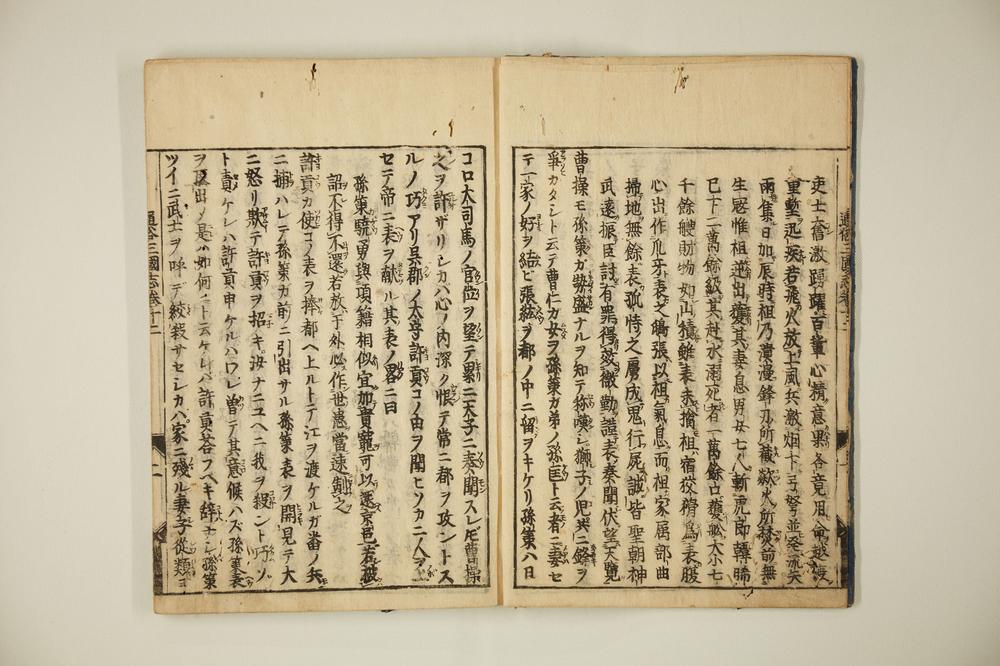 吏士奮激踴躍百重心精意果各竟用命越渡
重塹迅疾若飛火放上風兵激烟下弓弩並発流矢
雨集日加辰時祖乃潰漫鋒刃所截焱火所焚前無
生寇惟祖迸出獲其妻息男女七人斬虎郎韓晞
已下二萬餘級其赴水溺死者一萬餘口獲舩大小七
千餘艘財物如山積雖表未擒祖宿狡猾為表腹
心出作爪牙表之鴟張以祖氣息而祖家属部曲
掃地無餘表孤特之虜成鬼行屍誠皆聖朝神
武遠振臣討有罪得效微勤謹表奏聞伏望天覧
曹操モ孫策ガ勢盛ナルヲ知テ獅子ノ児ト鋒ヲ
爭カタシト云テ曹仁カ女ヲ孫策カ弟ノ孫匡ト云者ニ妻セ
テ一家ノ好ヲ結ヒ張紘ヲ都ノ中ニ留ヲキケリ孫策ハ日
コロ大司馬ノ官位ヲ望テ累ニ天子ニ奏聞スレ𪜈曹操
之ヲ許ザリシカバ心ノ内深ク恨テ常ニ都ヲ攻ントス
ルノ巧アリ呉郡ノ太守許貢コノ由ヲ聞ヒソカニ人ヲ
セテ帝ニ表ヲ献ル其表ノ畧ニ曰
孫策驍勇與項籍相似宜加貴寵可以還京邑若被
詔不得不還若放于外必作世患當速制之
許貢カ使コノ表ヲ捧都ヘ上ルトテ江ヲ渡ケルガ當ノ兵
ニ捕ハレテ孫策カ前ニ引出サル孫策表ヲ開見テ大
ニ怒リ欺テ許貢ヲ招キ汝ナニユヘニ我ヲ殺ント巧ゾ
ト責ケレハ許貢申ケルハワレ曽テ其意候ハズ孫策表
ヲ取出ソ是ハ如何ニト云ケレハ許貢荅フヘキ辞ナシ孫策
ツイニ武士ヲ呼デ絞殺サセシカバ家ニ殘ル妻子從類
通俗三國志卷十二